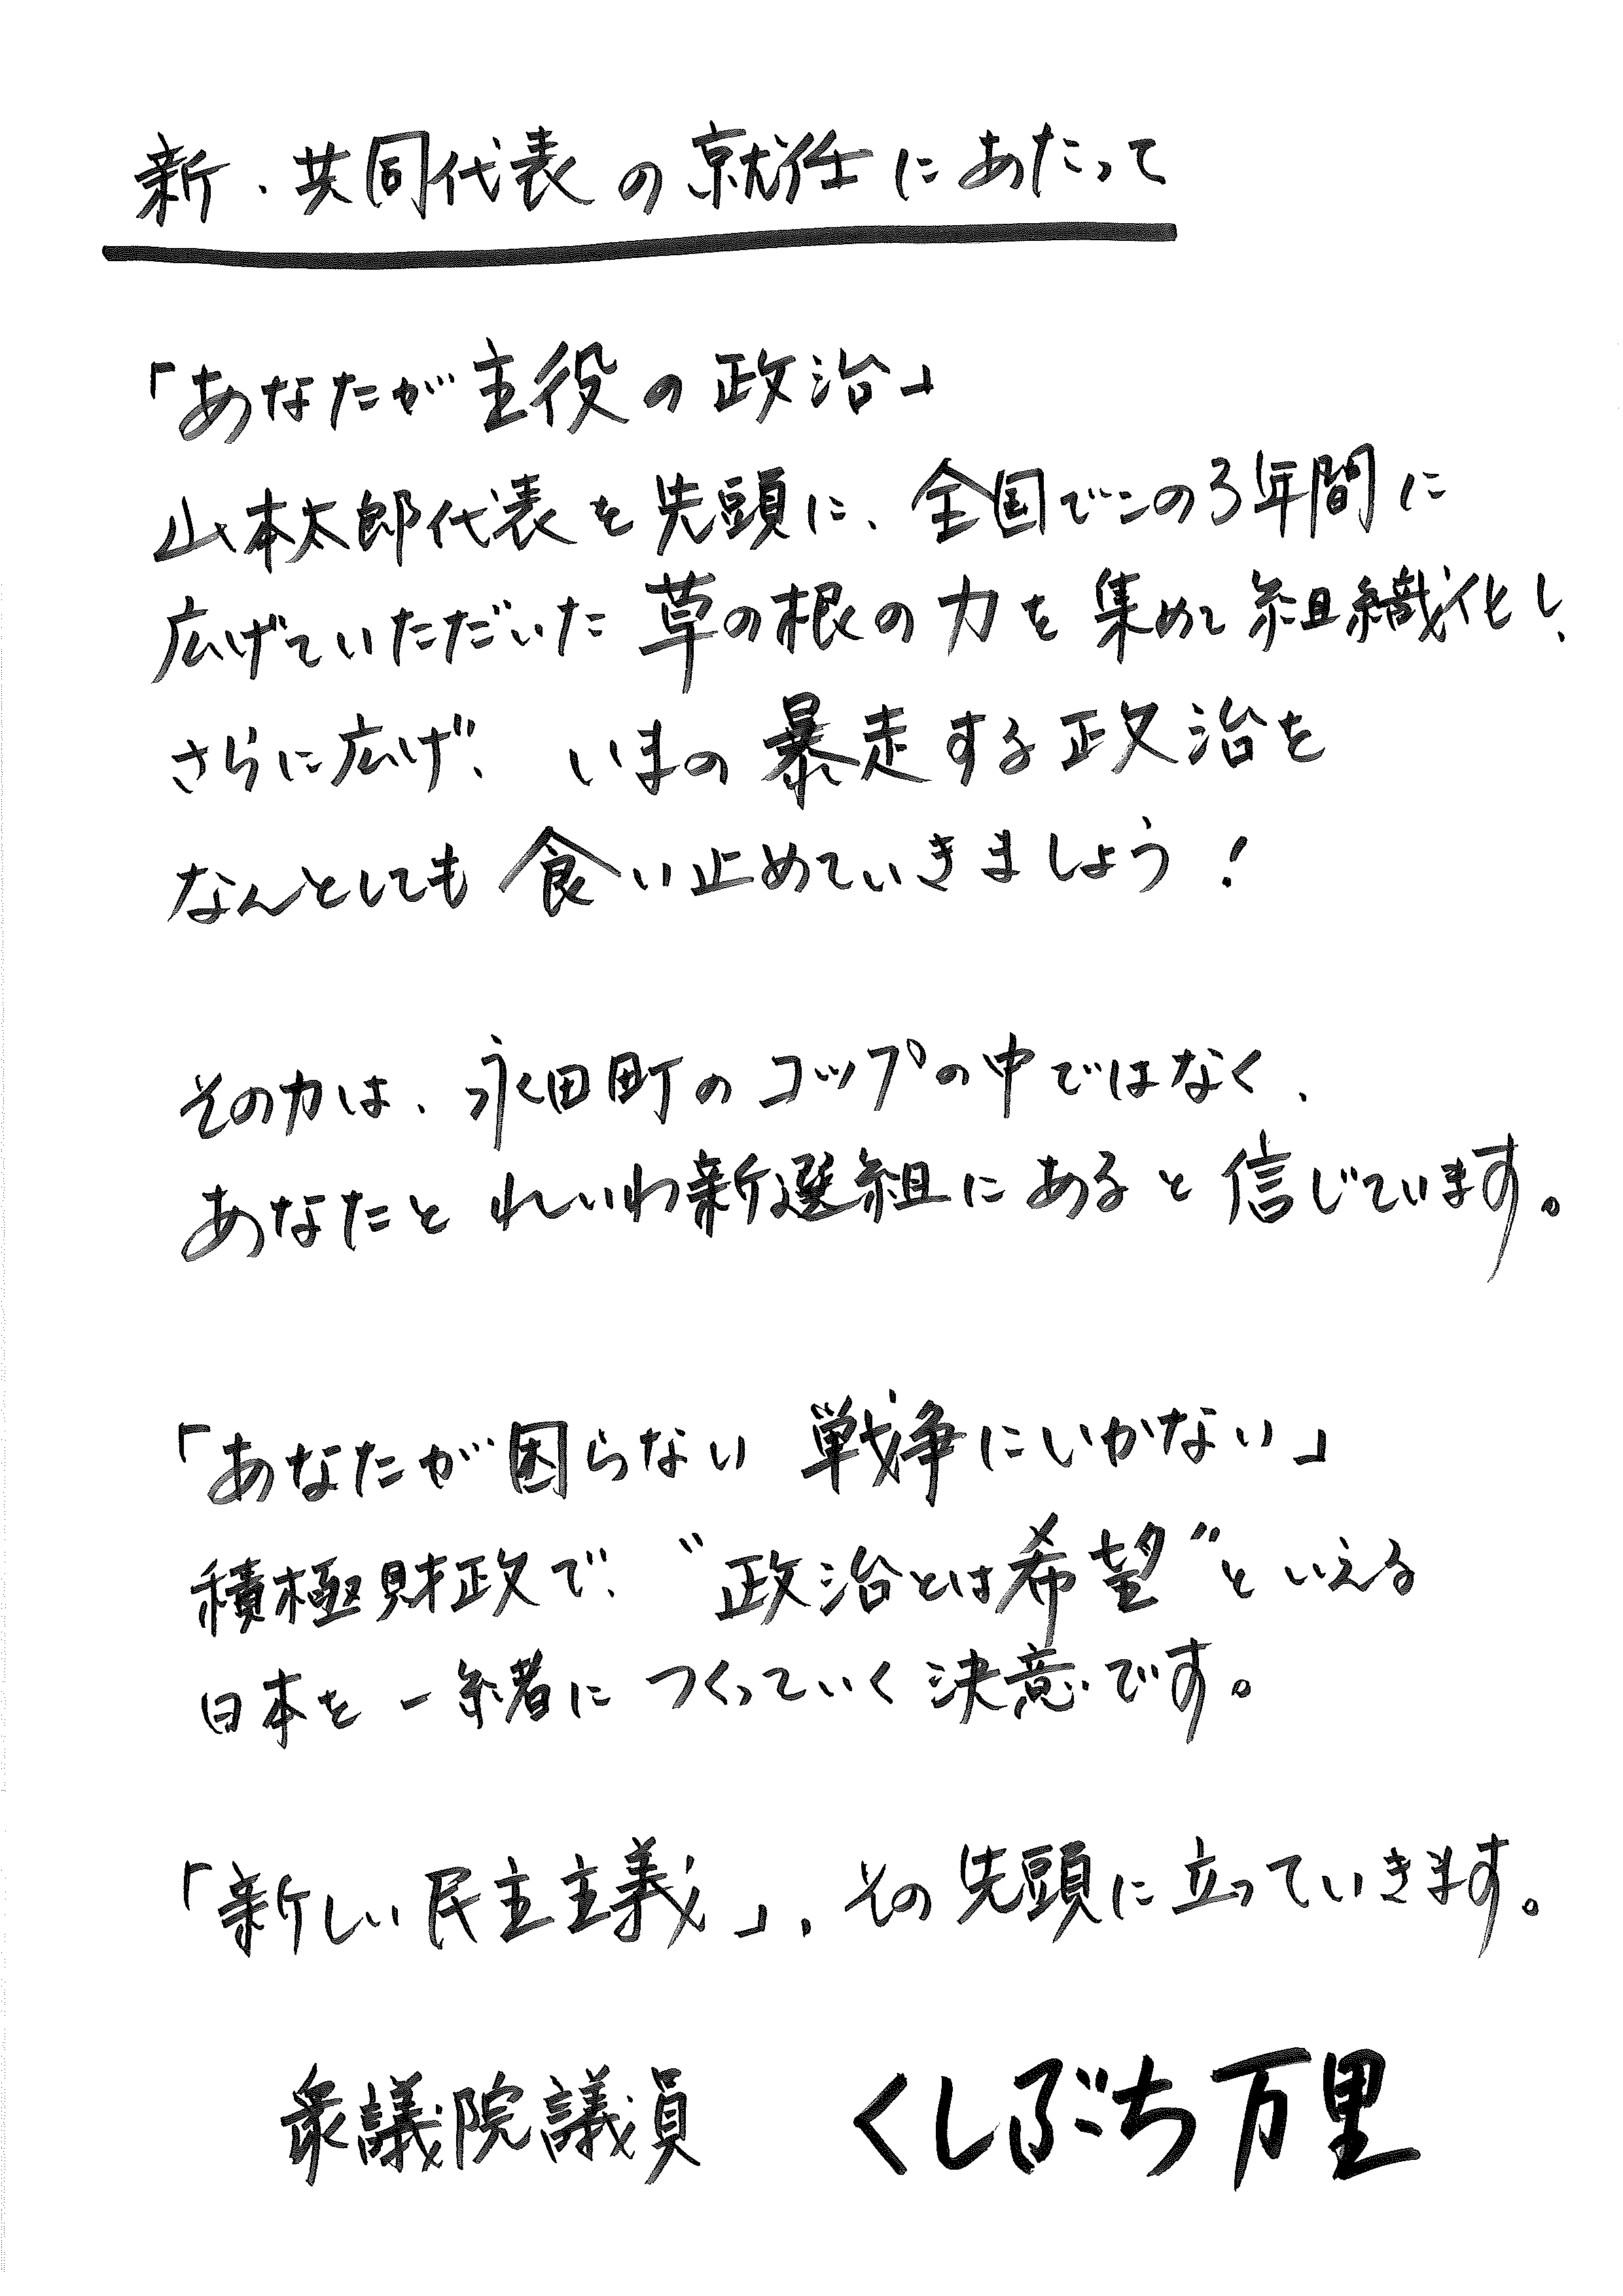 新・共同代表の就任にあたって
「あなたが主役の政治」
山本太郎代表を先頭に、全国でこの3年間に
広げていただいた草の根の力を集めて組織化し、
さらに広げ、いまの暴走する政治を
なんとしても食い止めていきましょう!
その力は、永田町のコップの中ではなく、
あなたとれいわ新選組にあると信じています。
「あなたが困らない 戦争にいかない」
積極財政で、“政治とは希望”といえる
日本を一緒につくっていく決意です。
「新しい民主主義」、その先頭に立っていきます。
衆議院議員 くしぶち万里